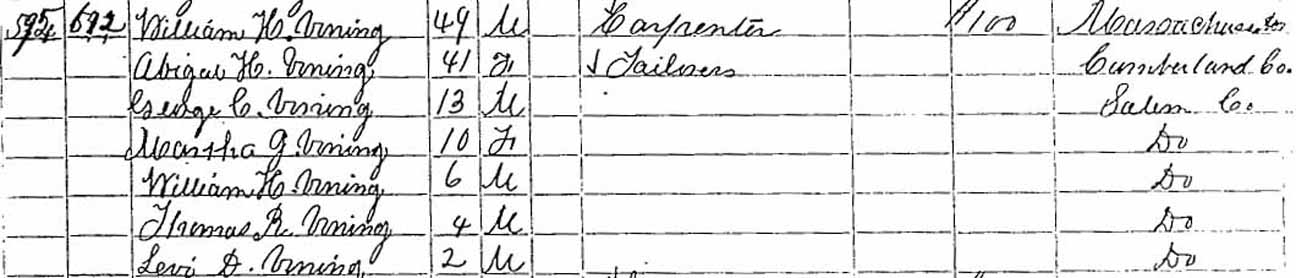 595 692 William H. Vining 49 M Carpenter 100 Massachusetts
Abigal H. Vining 41 F Tailoress Cumberland Co.
George C. Vining 13 M Salem Co.
Martha J. Vining 10 F Do
William H. Vining 6 M Do
Thomas R. Vining 4 M Do
Levi D. Vining 2 M Do